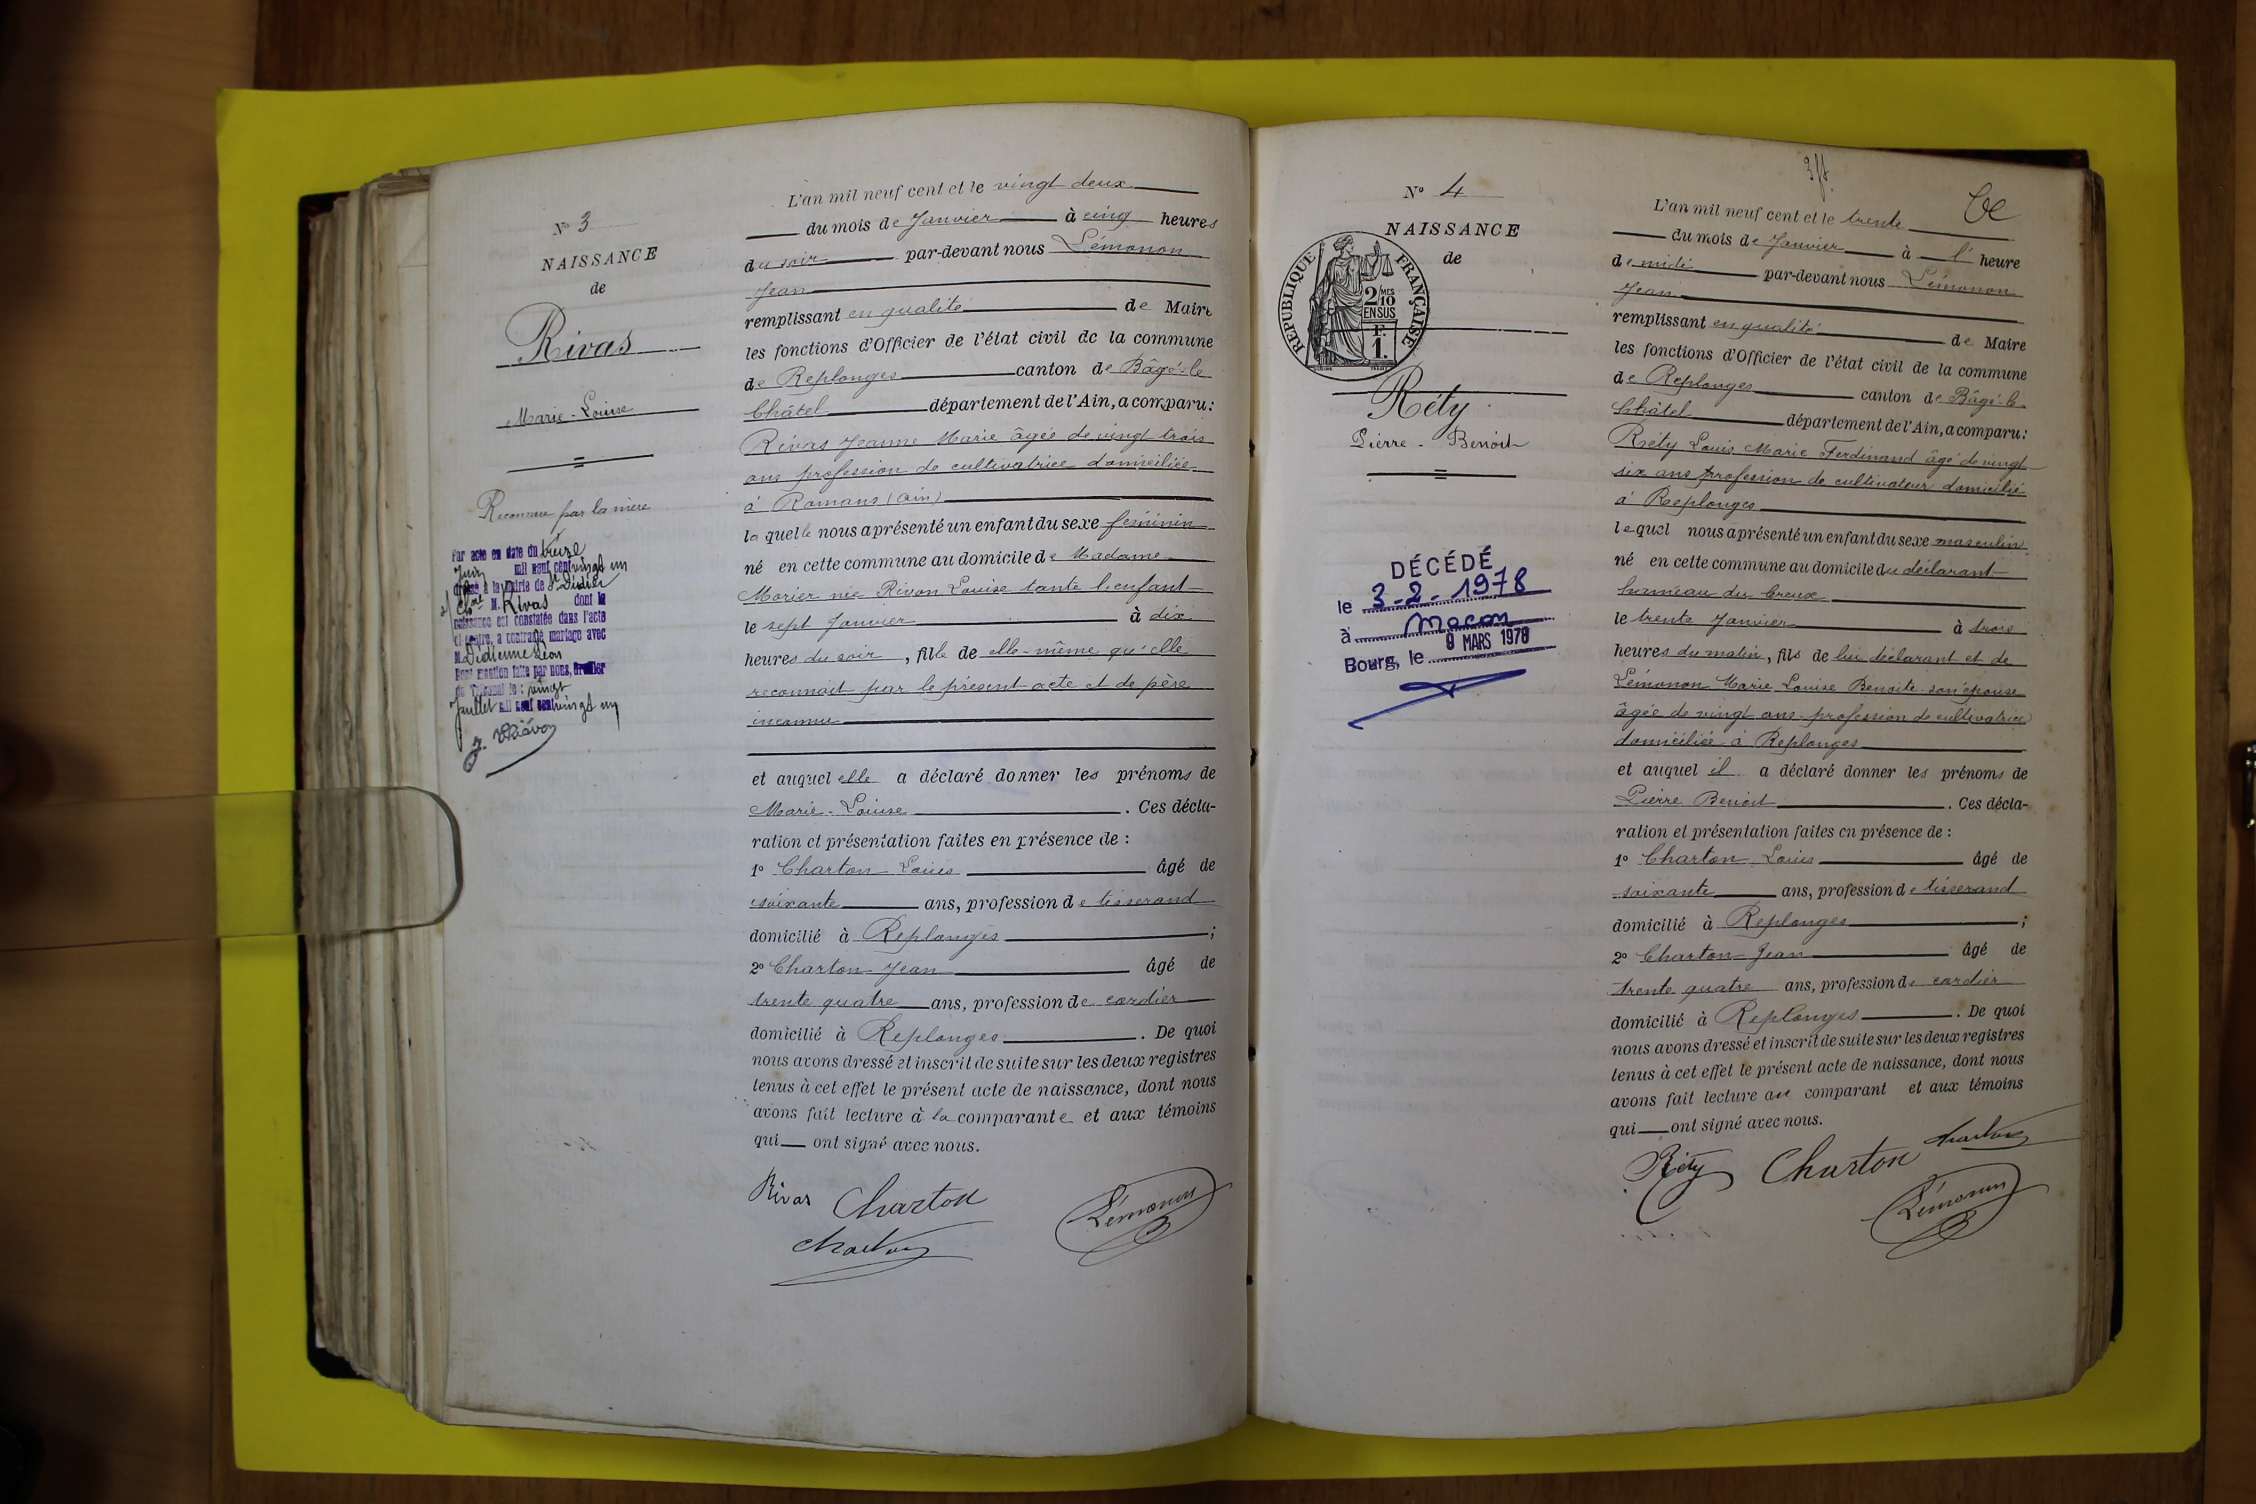 N° 3
NAISSANCE
de
Rivas
Marie-Louise
Reconnue par la mère
Par acte en date du treize
Juin mil neuf cent vingt un
dressé à la Mairie de St Didier
s/ Chne M. Rivas dont la
naissance est constatée dans l'acte
ci-contre, a contracté mariage avec
M. Didienne Léon
Pour mention faite par nous, Greffier
du Tribunal le : vingt
Juillet mil neuf cent vingt un
L'an mil neuf cent et le vingt deux
du mois de Janvier à cinq heures
du soir par-devant nous Lémonon
Jean
remplissant en qualité de Maire
les fonctions d'Officier de l'état civil de la commune
de Replonges canton de Bâgé-le
Châtel département de l'Ain, a comparu :
Rivas Jeanne Marie âgée de vingt trois
ans profession de cultivatrice domiciliée
à Romans (Ain)
laquelle nous a présenté un enfant du sexe féminin
né en cette commune au domicile de Madame
Morier née Rivon Louise tante l'enfant
le sept Janvier à dix
heures du soir, fille de elle-même qu'elle
reconnait par le présent acte et de père
inconnu
et auquel elle a déclaré donner les prénoms de
Marie-Louise. Ces décla-
ration et présentation faites en présence de :
1° Charton Louis âgé de
soixante ans, profession de tisserand
domicilié à Replonges ;
2° Charton Jean âgé de
trente quatre ans, profession de cordier
domicilié à Replonges. De quoi
nous avons dressé et inscrit de suite sur les deux registres
tenus à cet effet le présent acte de naissance, dont nous
avons fait lecture à la comparante et aux témoins
qui ont signé avec nous.
Rivas Charton
Charton Lémonon
N° 4
NAISSANCE
de
REPUBLIQUE FRANÇAISE
2/10 MES
EN SUS
F.
1.
Réty
Pierre-Benoit
DÉCÉDÉ
le 3-2-1978
à Macon
Bourg, le 9 MARS 1978
L'an mil neuf cent et le trente
du mois de Janvier à l' heure
de midi par-devant nous Lémonon
Jean
remplissant en qualité de Maire
les fonctions d'Officier de l'état civil de la commune
de Replonges canton de Bâgé-le
Châtel département de l'Ain, a comparu :
Réty Louis Marie Ferdinand âgé de vingt
six ans profession de cultivateur domicilié
à Replonges
lequel nous a présenté un enfant du sexe masculin
né en cette commune au domicile du déclarant
hameau du Creux
le trente Janvier à trois
heures du matin, fils de lui déclarant et de
Lémonon Marie Louise Benoite son épouse
âgée de vingt ans profession de cultivatrice
domiciliée à Replonges
et auquel il a déclaré donner les prénoms de
Pierre Benoit. Ces décla-
ration et présentation faites en présence de :
1° Charton Louis âgé de
soixante ans, profession de tisserand
domicilié à Replonges ;
2° Charton Jean âgé de
trente quatre ans, profession de cordier
domicilié à Replonges. De quoi
nous avons dressé et inscrit de suite sur les deux registres
tenus à cet effet le présent acte de naissance, dont nous
avons fait lecture au comparant et aux témoins
qui ont signé avec nous.
Réty Charton Charton
Lémonon